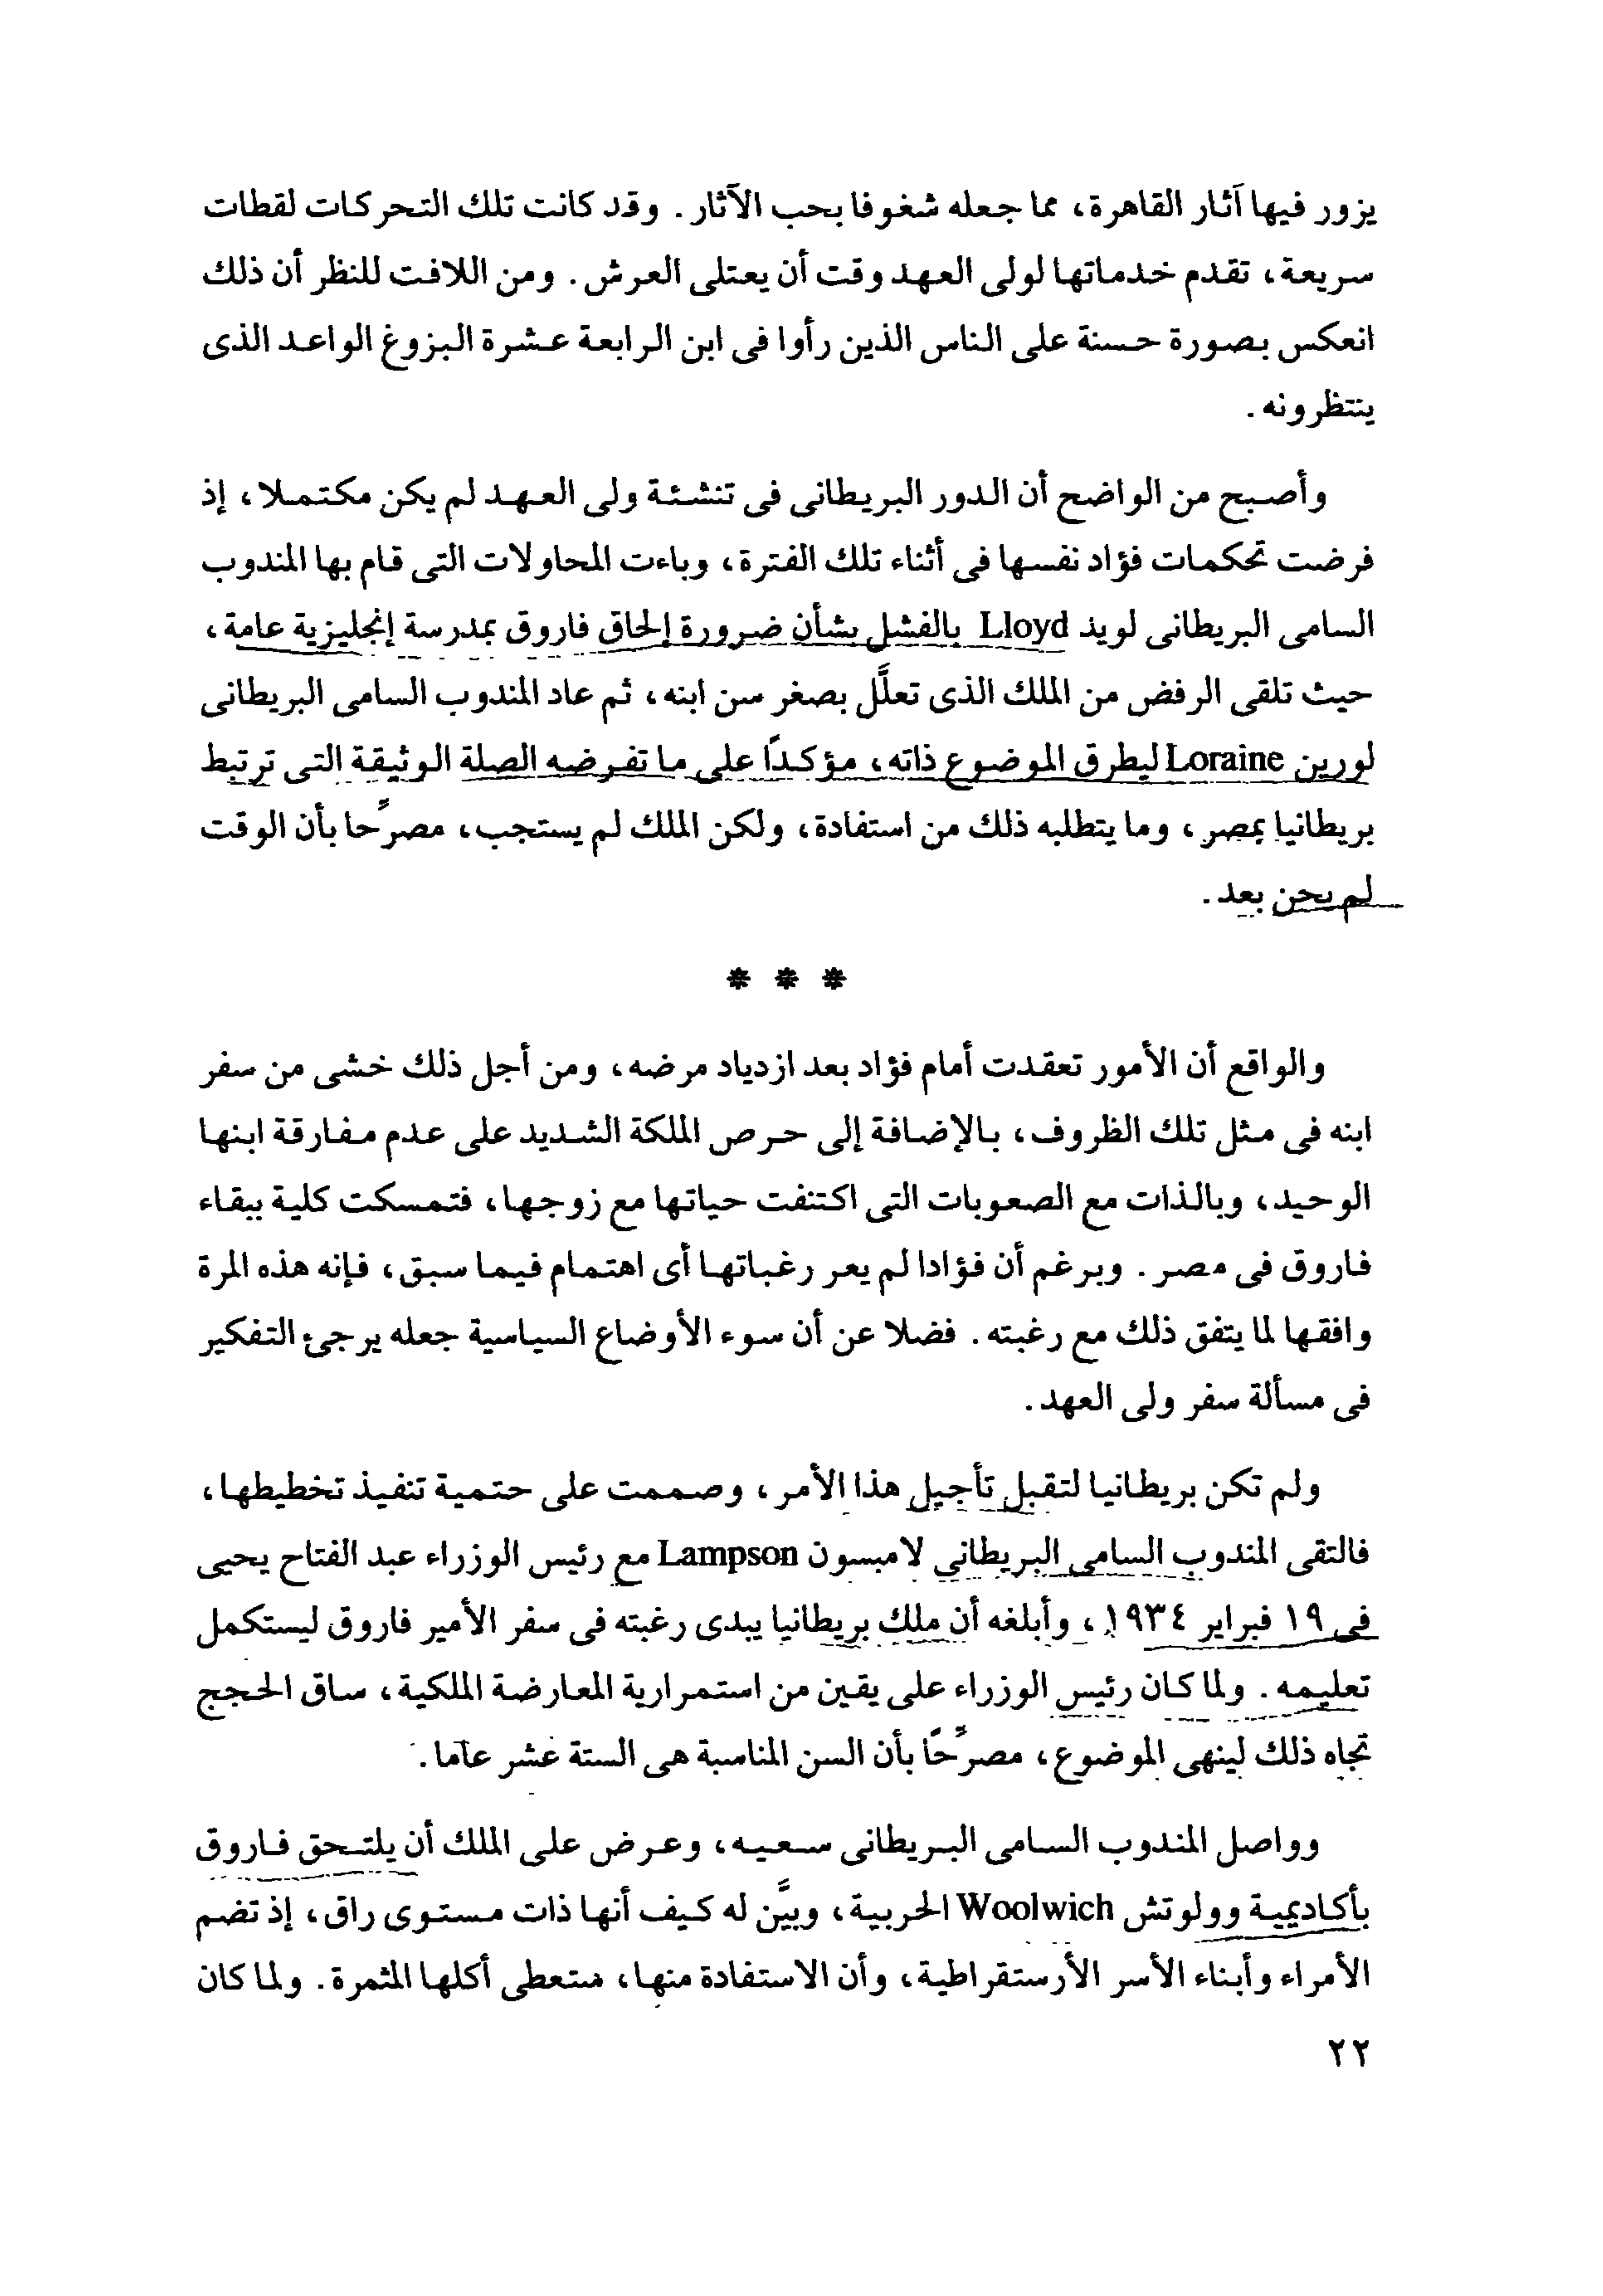 يزور فيها آثار القاهرة، مما جعله شغوفا بحب الآثار. وقد كانت تلك التحركات لقطات
سريعة، تقدم خدماتها لولى العهد وقت أن يعتلى العرش. ومن اللافت للنظر أن ذلك
انعكس بصورة حسنة على الناس الذين رأوا فى ابن الرابعة عشرة البزوغ الواعد الذى
ينتظرونه.
وأصبح من الواضح أن الدور البريطانى فى تنشئة ولى العهد لم يكن مكتملا، إذ
فرضت تحكمات فؤاد نفسها فى أثناء تلك الفترة، وباءت المحاولات التى قام بها المندوب
السامى البريطانى لويد Lloyd بالفشل بشأن ضرورة إلحاق فاروق بمدرسة إنجليزية عامة،
حيث تلقى الرفض من الملك الذى تعلَّل بصغر سن ابنه، ثم عاد المندوب السامى البريطانى
لورين Loraine ليطرق الموضوع ذاته، مؤكدًا على ما تفرضه الصلة الوثيقة التى ترتبط
بريطانيا بمصر، وما يتطلبه ذلك من استفادة، ولكن الملك لم يستجب، مصرِّحا بأن الوقت
لم يحن بعد.
* * *
والواقع أن الأمور تعقدت أمام فؤاد بعد ازدياد مرضه، ومن أجل ذلك خشى من سفر
ابنه فى مثل تلك الظروف، بالإضافة إلى حرص الملكة الشديد على عدم مفارقة ابنها
الوحيد، وبالذات مع الصعوبات التى اكتنفت حياتها مع زوجها، فتمسكت كلية ببقاء
فاروق فى مصر. وبرغم أن فؤادا لم يعر رغباتها أى اهتمام فيما سبق، فإنه هذه المرة
وافقها لما يتفق ذلك مع رغبته. فضلا عن أن سوء الأوضاع السياسية جعله يرجئ التفكير
فى مسألة سفر ولى العهد.
ولم تكن بريطانيا لتقبل تأجيل هذا الأمر، وصممت على حتمية تنفيذ تخطيطها،
فالتقى المندوب السامى البريطانى لامبسون Lampson مع رئيس الوزراء عبد الفتاح يحيى
فى ١٩ فبراير ١٩٣٤، وأبلغه أن ملك بريطانيا يبدى رغبته فى سفر الأمير فاروق ليستكمل
تعليمه. ولما كان رئيس الوزراء على يقين من استمرارية المعارضة الملكية، ساق الحجج
تجاه ذلك لينهى الموضوع، مصرِّحًا بأن السن المناسبة هى الستة عشر عاما.
وواصل المندوب السامى البريطانى سعيه، وعرض على الملك أن يلتحق فاروق
بأكاديمية وولوتش Woolwich الحربية، وبيَّن له كيف أنها ذات مستوى راق، إذ تضم
الأمراء وأبناء الأسر الأرستقراطية، وأن الاستفادة منها، ستعطى أكلها المثمرة. ولما كان
٢٢